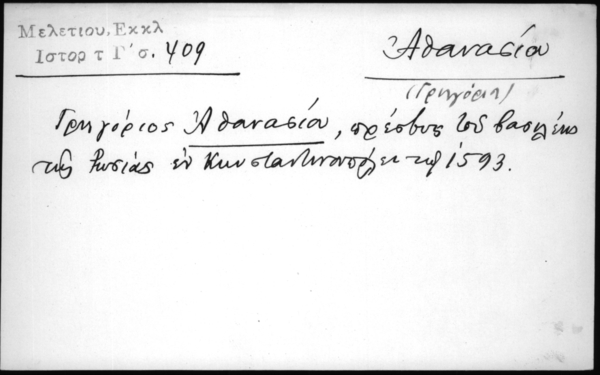 Μελετιου, Εκκλ
Ιστορ τ Γ΄ σ. 409
Ἀθανασία
(Γρηγόριος)
Γρηγόριος Ἀθανασία, πρέσβυς τοῦ βασιλέως
τῆς Ρωσίας ἐν Κωνσταντινουπόλει τῷ 1593.